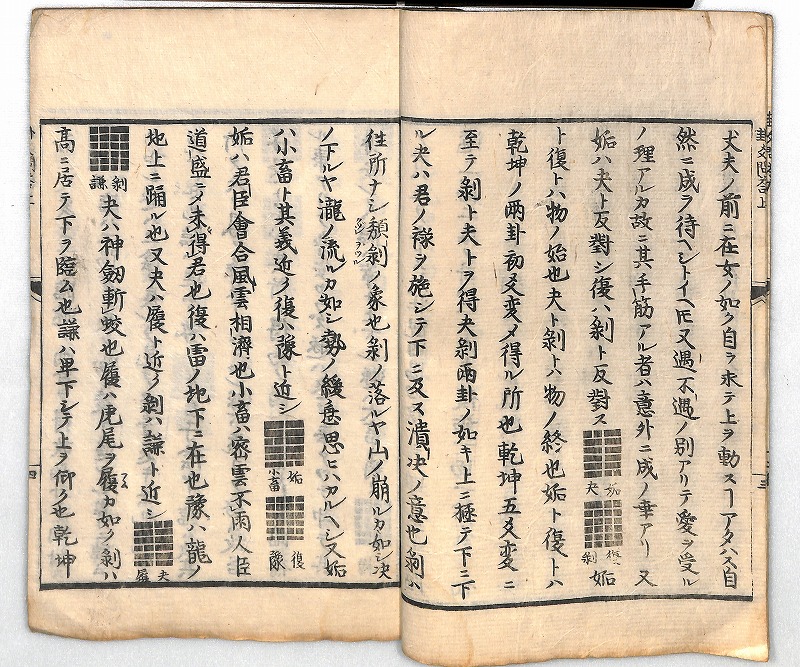 丈夫ノ前ニ在女ノ如ク自ラ求テ上ヲ動スヿアタハス自
然ニ成ヲ待ヘシトイヘ𪜈又遇不遇ノ別アリテ愛ヲ受ル
ノ理アルカ故ニ其手筋アル者ハ意外ニ成ノ ヿアリ又
姤ハ夬ト反對シ復ハ剝ト反對ス
姤
夬
復
剝
姤
ト復トハ物ノ始也夬ト剝トハ物ノ終也姤ト復トハ
乾坤ノ兩卦初爻変メ得ル所也乾坤五爻変ニ
至テ剝ト夬トヲ得夬剝兩卦ノ如キ上ニ極テ下ニ下
ル夬ハ君ノ祿ヲ施シテ下ニ及ス潰决ノ意也剝ハ
住所ナシ頽剝ノ象也剝ノ落ルヤ山ノ崩ルカ如シ决
ノ下ルヤ瀧ノ流ルカ如シ勢ノ緩急思ヒハカルヘシ又姤
ハ小畜ト其義近ク復ハ豫ト近シ
姤
小畜
復
豫
姤ハ君臣會合風雲相濟也小畜ハ密雲不雨人臣
道盛ニメ未得君也復ハ雷ノ地下ニ在也豫ハ龍ノ
地上ニ踊ル也又夬ハ履ト近ク剝ハ謙ト近シ
夬
履
剝
謙
夬ハ神劔斬蛟也履ハ虎尾ヲ履カ如ク剝ハ
高ニ居テ下ヲ臨ム也謙ハ卑下シテ上ヲ仰ク也乾坤